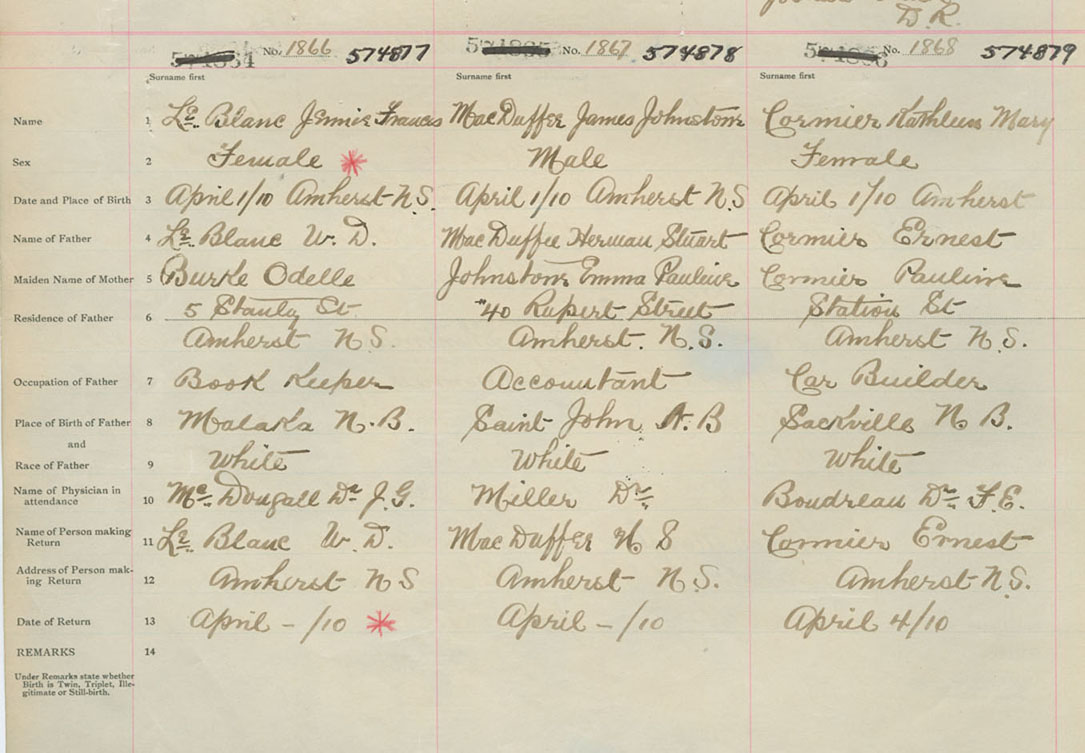 D.R.
No. 1866 574877 No. 1867 574878 No. 1868 574879
Surname first Surname first Surname first
Name 1 Le Blanc Jennie Frances MacDuffee James Johnstone Cormier Kathleen Mary
Sex 2 Female * Male Female
Date and Place of Birth 3 April 1/10 Amherst N.S. April 1/10 Amherst N.S April 1/10 Amherst
Name of Father 4 Le Blanc W. D. MacDuffee Herman Stuart Cormier Ernest
Maiden Name of Mother 5 Burke Odelle Johnstone Emma Pauline Cormier Pauline
Residence of Father 6 5 Stanly St. "40 Rupert Street Station St
Amherst N.S. Amherst. N.S. Amherst N.S.
Occupation of Father 7 Book Keeper Accountant Car Builder
Place of Birth of Father 8 Malaka N.B. Saint John N.B Sackville N.B.
and
Race of Father 9 White White White
Name of Physician in attendance 10 Mc Dougall Dr J.G. Miller Dr. Boudreau Dr. F.E.
Name of Person making Return 11 Le Blanc W. D. MacDuffee H S Cormier Ernest
Address of Person mak-
ing Return 12 Amherst N S Amherst N.S. Amherst N.S.
Date of Return 13 April - /10 * April - /10 April 4/10
REMARKS 14
Under Remarks state whether
Birth is Twin, Triplet, Ille-
gitimate or Still-birth.